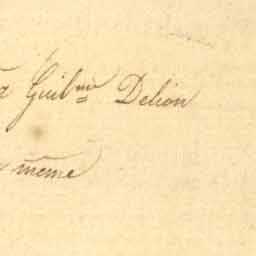 Guil.me Delion
même